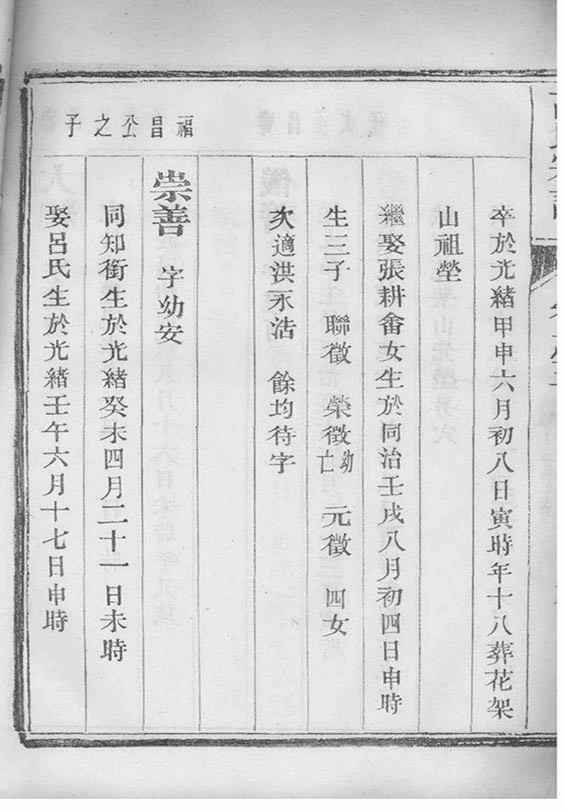 卒於光緒甲申六月初八日寅時年十八葬花架
山祖塋
繼娶張耕畬女生於同治壬戌八月初四日申時
生三子 聯徵 榮徵幼亡 元徵 四女
次適洪永浩 餘均待字
福昌公之子
崇善 字幼安
同知銜生於光緒癸未四月二十一日未時
娶呂氏生於光緒壬午六月十七日申時